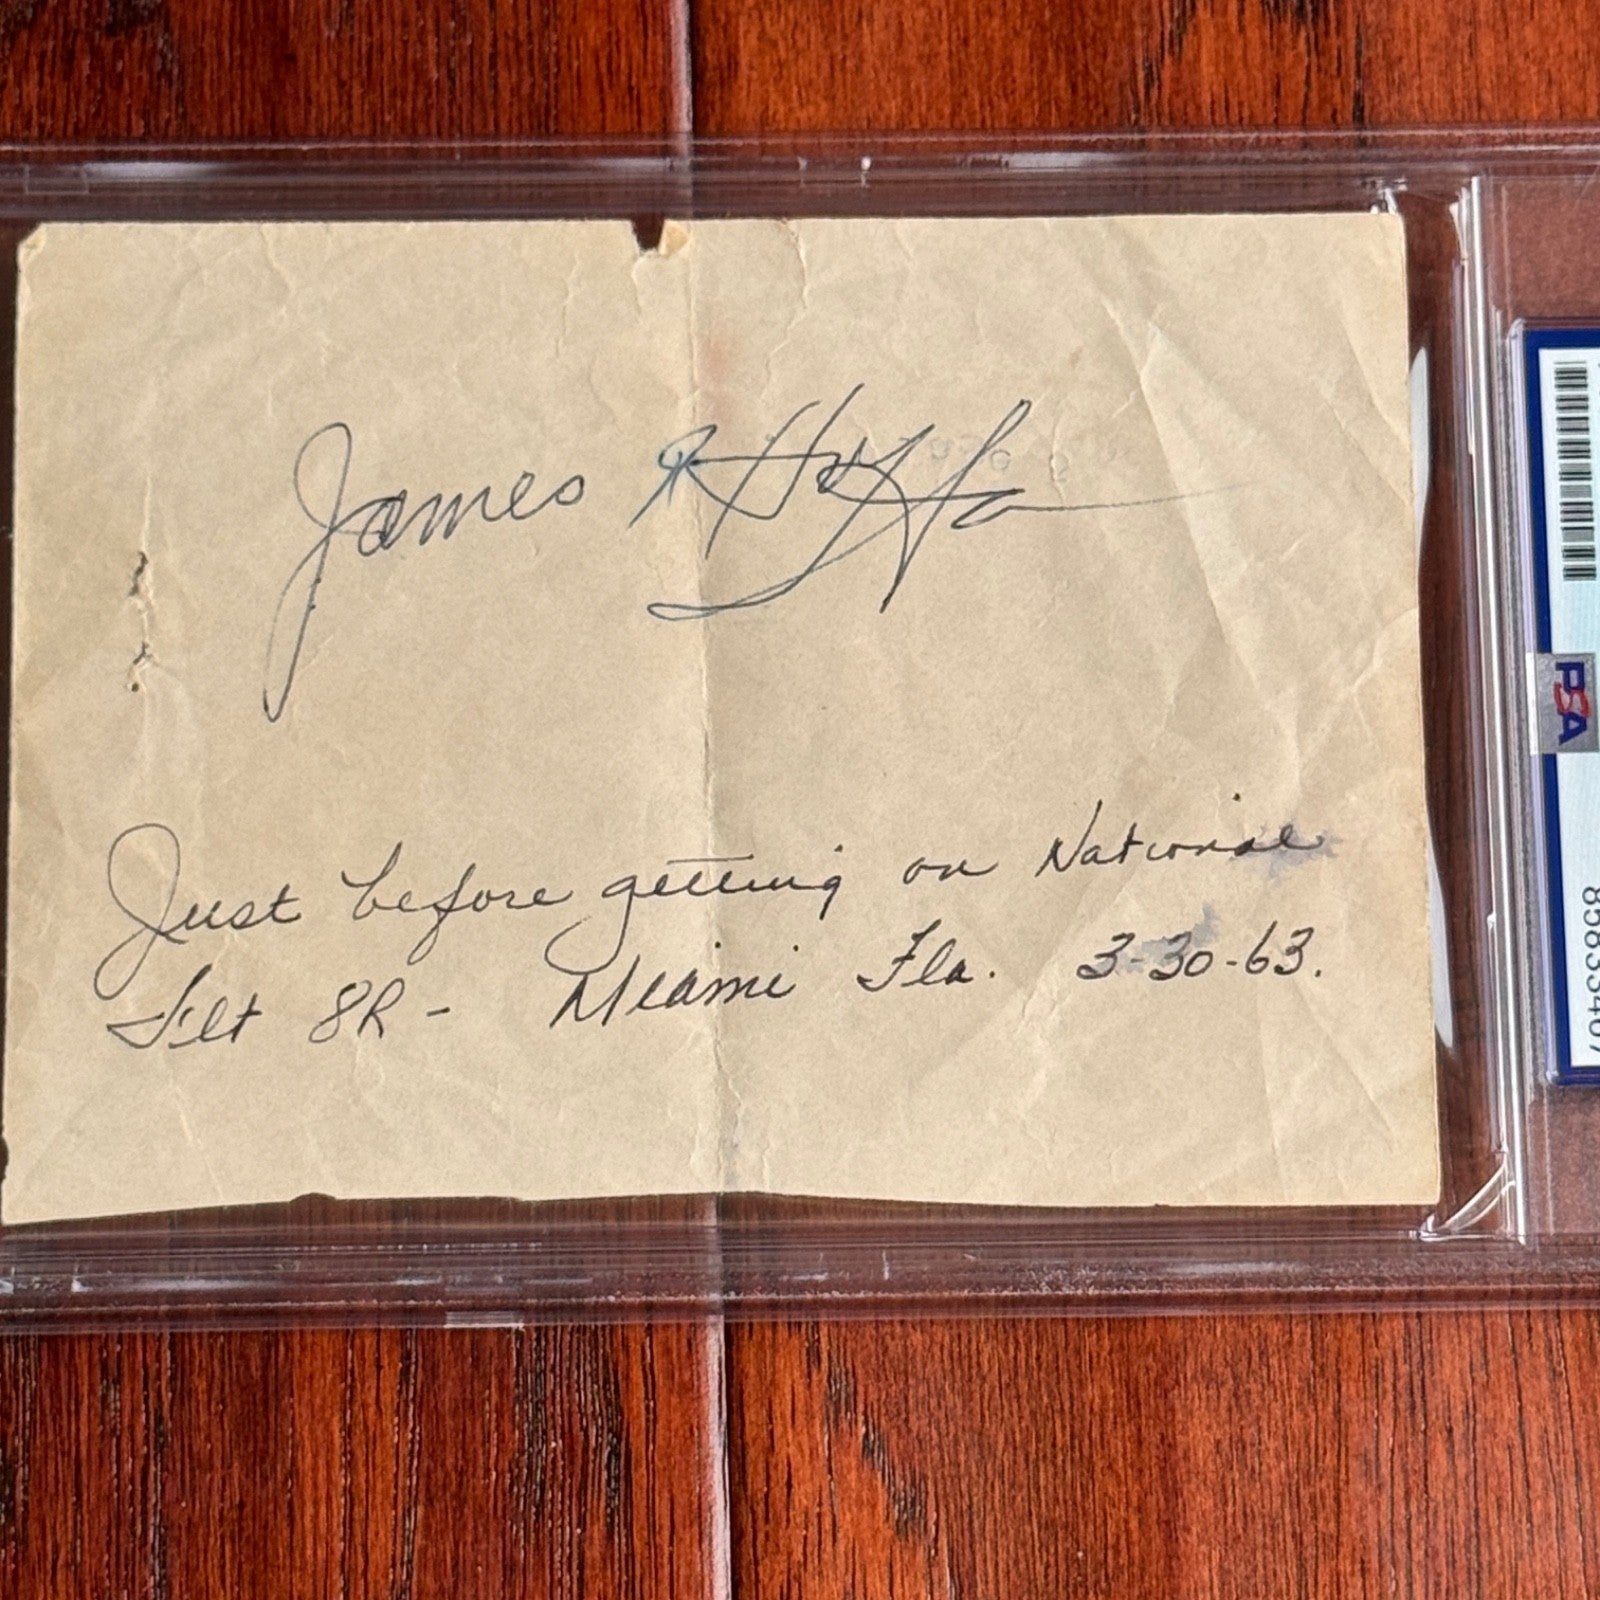 James R Hoffa
Just before getting on National
Flt 8R - Miami Fla. 3-30-63.
PSA